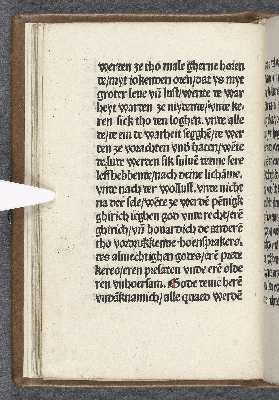 werden ze tho male gherne horen
te/myt iokenden oren/dat ys myt
groter leue vn̄ lust/wente te war
heyt warten ze myden te/vnde ke
ren sick tho den loghen. vnde alle
te/te em de warheit segghē/te wer
den ze vorachten vnd haten/wēte
te lude werden sik sulue denne sere
leff hebbende/nach deme lichāme.
vnde nach der wollust. vnde nicht
na der sele/wēte ze werdē pēnigk
ghirich teghen god vnde recht/erē
ghirich/vn̄ houardich de anderē
tho vordruckende hoensprakers.
des almechtighen godes/erē prede
keren/eren prelaten vnde erē olde
ren vnhorsam. Gode vnde herē
vndāknamich/alle quaed werdē